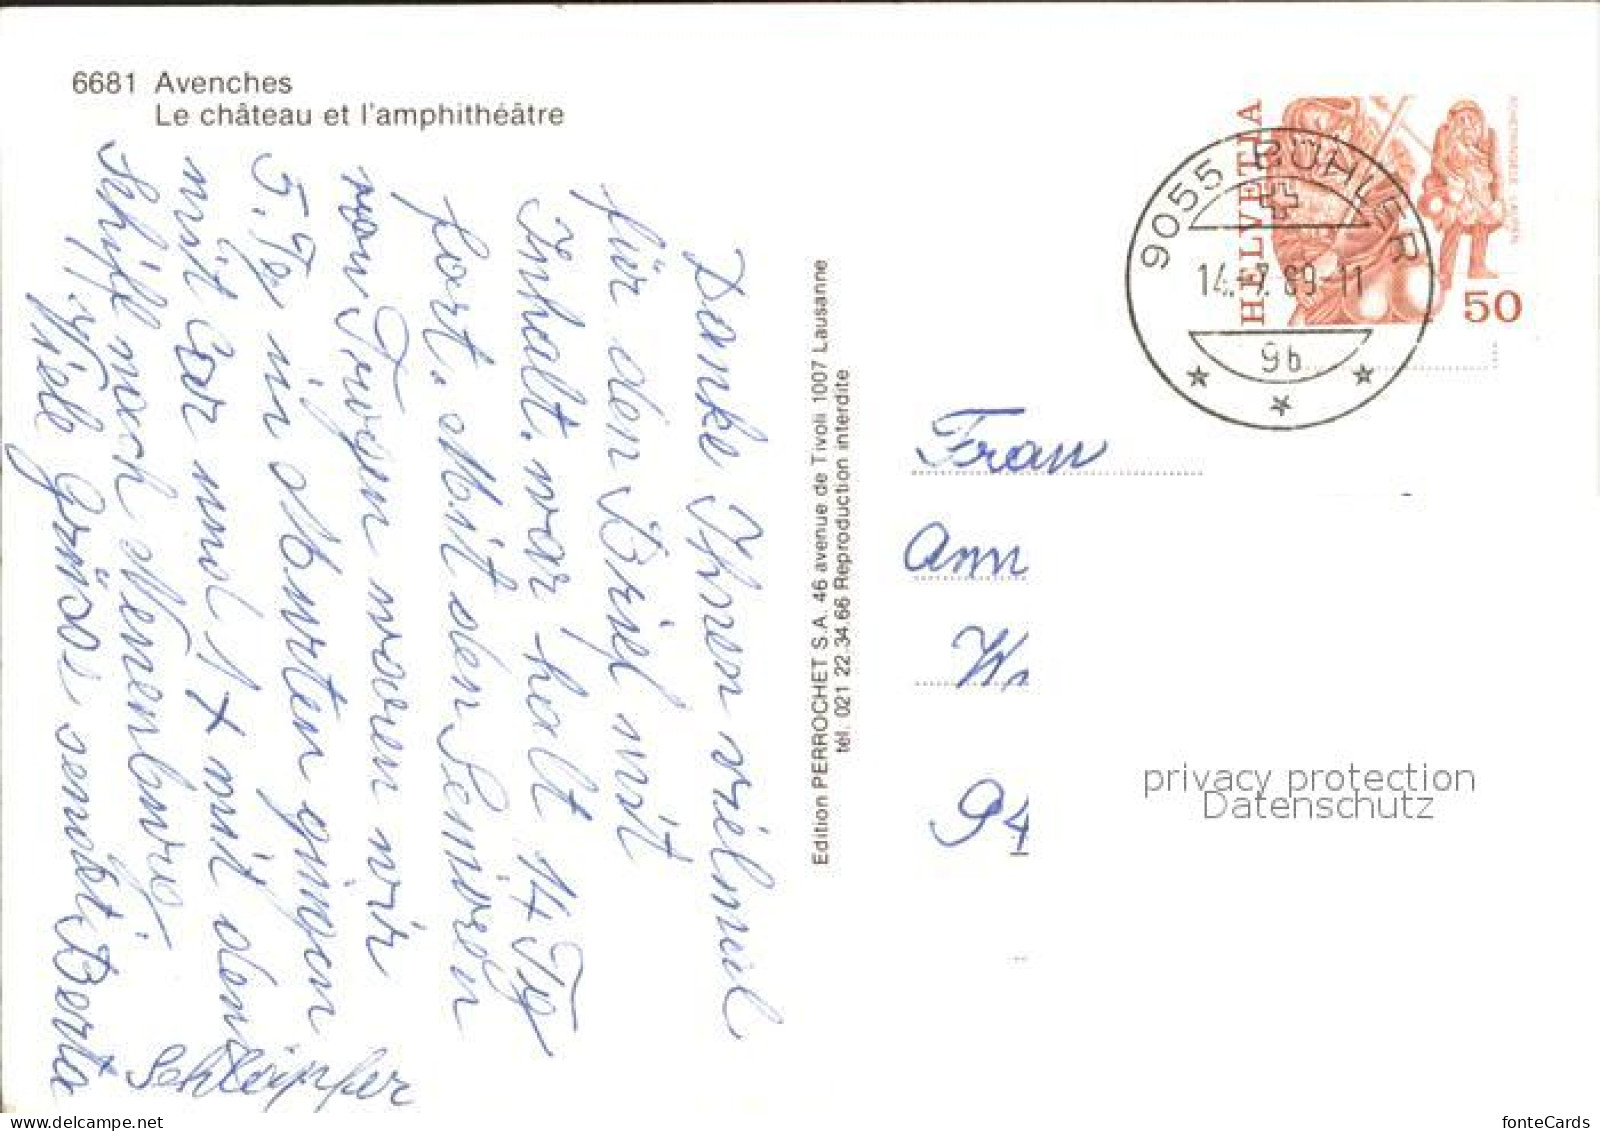 6681 Avenches
Le château et l'amphithéâtre
Danke Ihnen vielmal
für den Brief mit
Inhalt. war halt 14 Tg
fort. Mit den Senioren
von Trogen waren wir
5. Tg in Murten gingen
mit Car und 1 x mit dem
Schiff nach Neuenburg
Viele Grüsse sendet Berta
Schläpfer
Edition PERROCHET S.A. 46 avenue de Tivoli 1007 Lausanne
tél. 021 22.34.66 Reproduction interdite
HELVETIA
50
9055 BÜHLER
14.-7.89-11
9b
Frau
Ann
94
privacy protection
Datenschutz
fonteCards